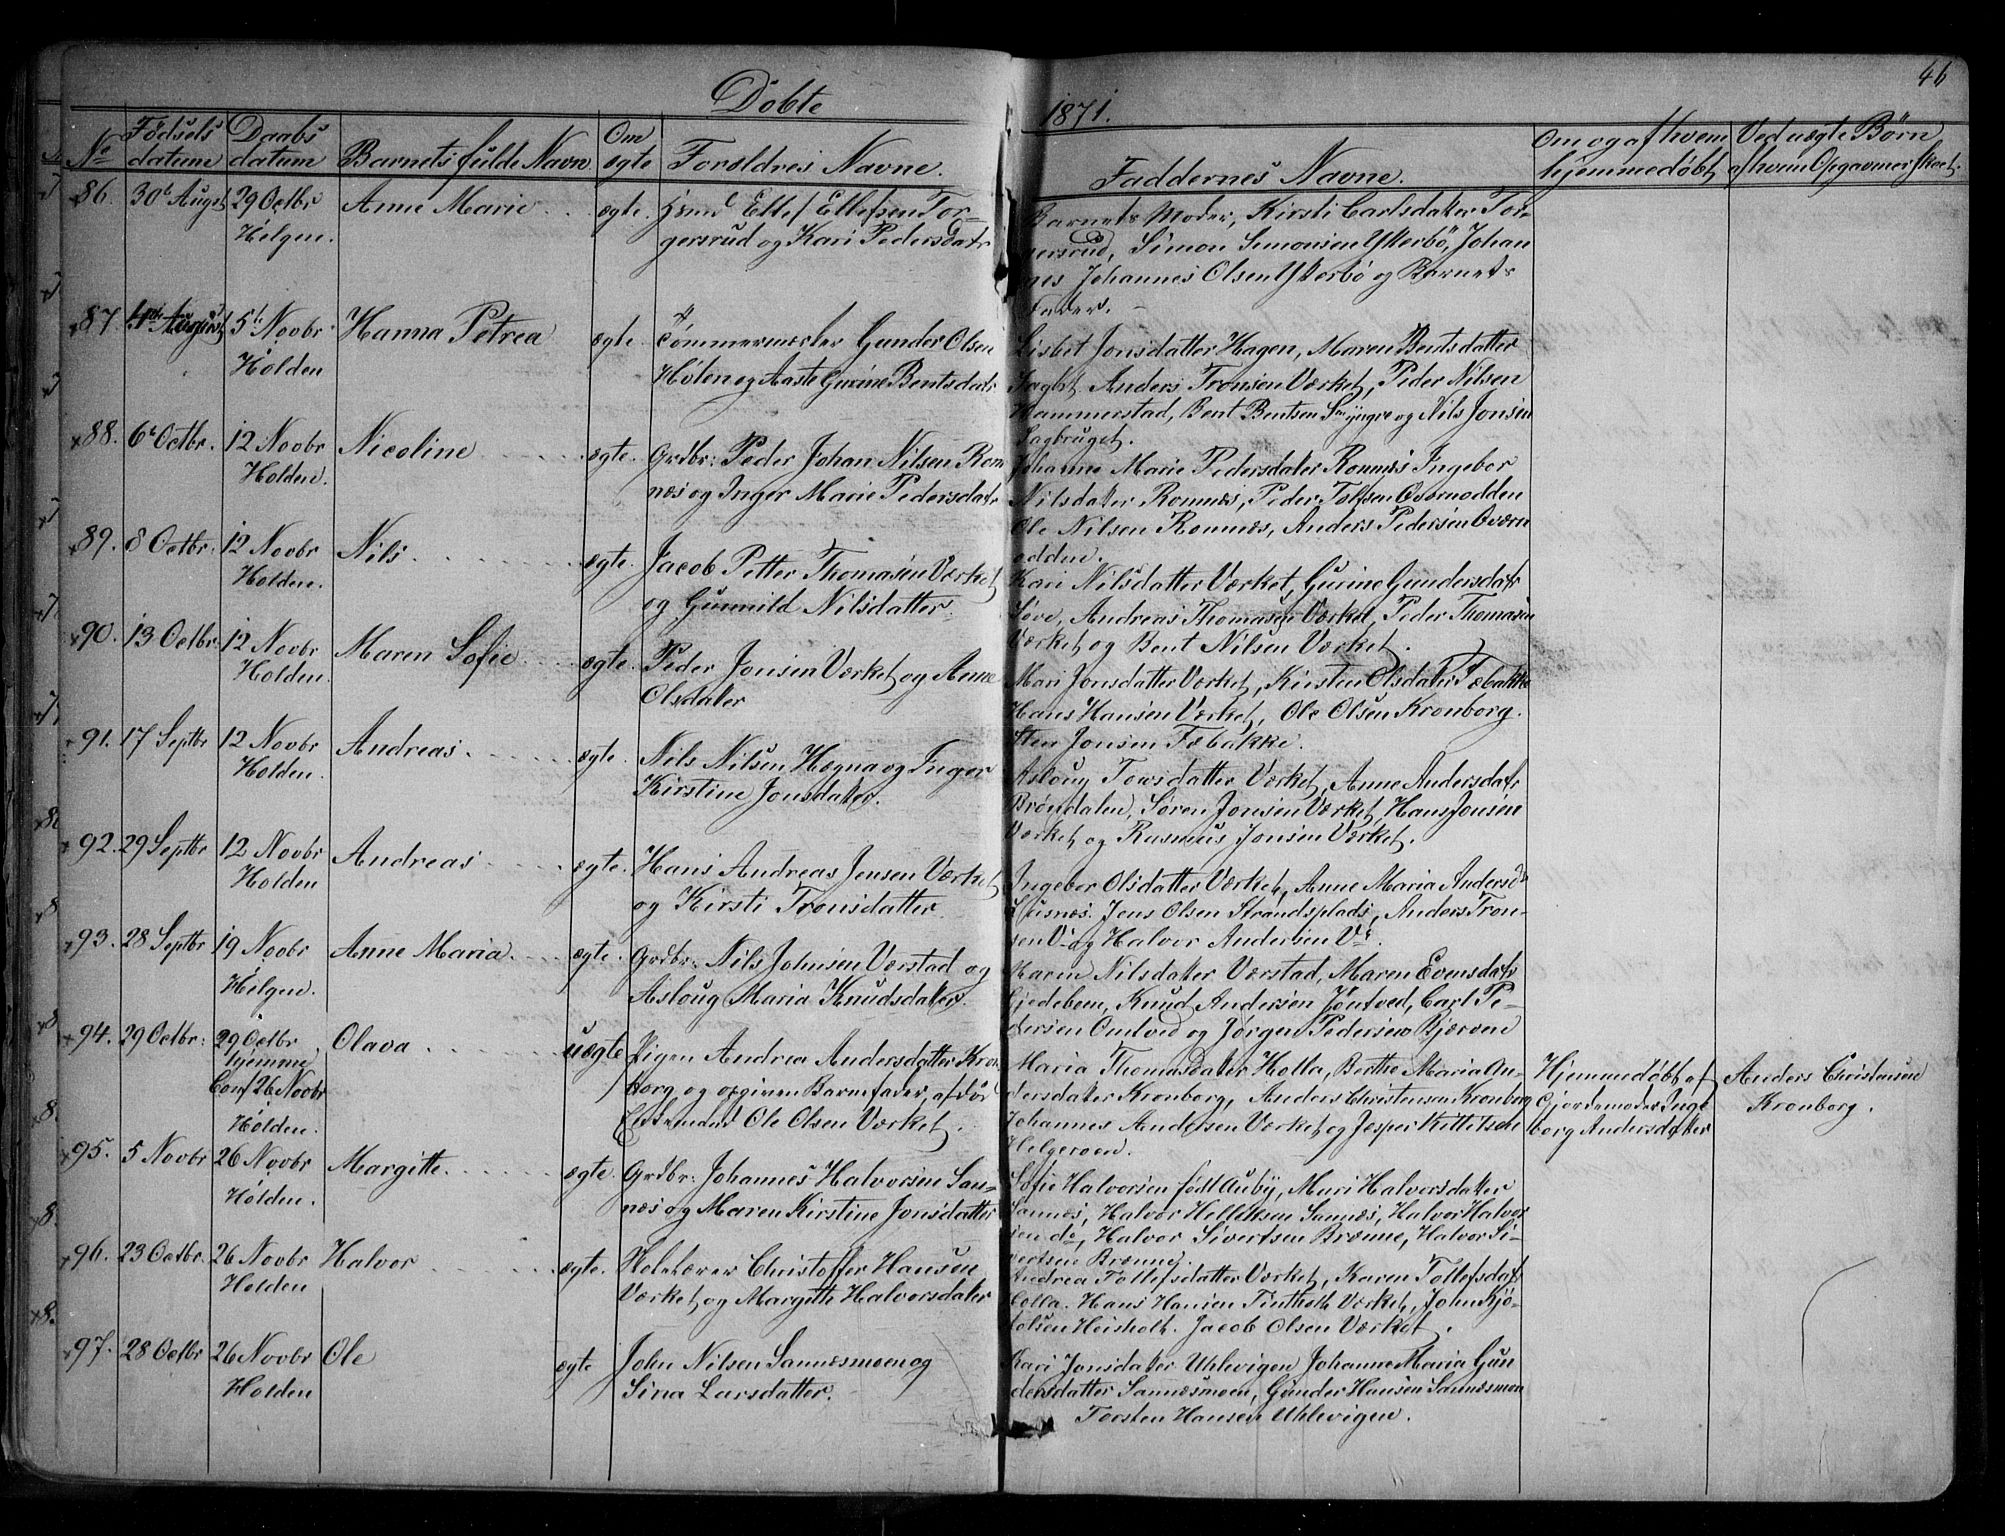 Døbte
1871.
46
No
Fødsels
datum
Daabs
datum
Barnets fulde Navn
Om
ægte
Forældres Navne.
Faddernes Navne.
Om og af hvem
hjemmedøbt
Ved uægte Børn
af hvem Opgaven er skeet.
86. 30te Augst 29 Octbr Anne Marie ægte. Ellef Ellefsen Tor-
Helgen. gersrud og Kari Pedersdatr
Barnets Moder, Kirsti Carlsdatter Tor-
gersrud, Simon Simonsen Ytterbø, Johan
nes Johannes Olsen Ytterbø og Barnets
Fader.
87. August 5te Novbr Hanna Petrea ægte. Tømmermester Gunder Olsen
Holden Holen og Aaste Gurine Bentsdatr
Lisbet Jonsdatter Hagen, Maren Bentsdatter
Anders Tronsen Værket, Peder Nilsen
Hammerstad, Bent Bentsen yngre og Nils Jonsen
Sagbruget.
88. 6te Octbr. 12 Novbr Nicoline ægte. Grdbr: Peder Johan Nilsen Rom
Holden. næs og Inger Marie Pedersdatr
Johanne Marie Pedersdatter Romnæs Ingebor
Nilsdatter Romnæs, Peder Tolfsen Overnodden
Ole Nilsen Romnæs, Anders Pedersen Overn
odden.
89. 8 Octbr. 12 Novbr Nils ægte. Jacob Petter Thomasen Værket
Holden. og Gunnild Nilsdatter.
Kari Nilsdatter Værket, Gurine Gundersdatr
Sove, Andreas Thomasen Værket, Peder Thomasen
Værket og Bent Nilsen Værket.
90. 13 Octbr. 12 Novbr Maren Sofie ægte. Peder Jonsen Værket og Anne
Holden. Olsdatter
Mari Jonsdatter Værket, Kirsten Olsdatter Fæbakke
Hans Hansen Værket, Ole Olsen Kronborg.
Sten Jonsen Fæbakke.
91. 17 Septbr 12 Novbr Andreas. ægte. Nils Nilsen Hægna og Inger
Holden. Kirstine Jonsdatter.
Asloug Towsdatter Værket, Anne Andersdatr
Brøndalen, Søren Jonsen Værket, Hans Jonsen
Værket og Rasmus Jonsen Værket.
92. 29 Septbr 12 Novbr Andreas ægte. Hans Andreas Jensen Værket
Holden og Kirsti Tronsdatter.
Ingebor Olsdatter Værket, Anne Maria Andersd
Jens Olsen Strandsplads, Anders Tron-
sen V. og Halvor Andersen V.
93. 28 Septbr 19 Novbr Anne Maria. ægte. Grdbr. Nils Johnsen Værstad og
Helgen. Asloug Maria Knudsdatter.
Karen Nilsdatter Værstad, Maren Evensdatr
Knud Andersen Jøntved, Carl Pe-
dersen Omtved og Jørgen Pedersen Bjerven
94. 29 Octbr: 29 Octbr Olava uægte Pigen Andrea Andersdatter Kron
hjemme borg og opgiven Barnefader, af dør
Conf 26 Novbr Ole Olsen Værket.
Holden.
Maria Thomasdatter Holla, Berthe Maria An-
dersdatter Kronborg, Anders Christensen Kronborg
Johannes Andersen Værket og Jesper Kittilsen
Helgeroen.
Hjemmedøbt af
Gjordemoder Inge
borg Andersdatter
Anders Christensen
Kronborg.
95. 5 Novbr 26 Novbr Margitte ægte. Grdbr: Johannes Halvorsen San-
Holden. næs og Maren Kirstine Jonsdatter
Sofie Halvorsen født Auby, Mari Halvorsdatter
Sannæs, Halvor Helliksen Sannæs, Halvor Halvor
sen do, Halvor Sivertsen Brænne, Halvor Si-
vertsen Brænne.
96. 23 Octbr. 26 Novbr Halvor ægte. Christoffer Hansen
Holden Værket og Margitte Halvorsdatter
Andrea Tollefsdatter Værket, Karen Tollefsdatr
Holla. Hans Hansen Tintholt Værket, John Kjø-
tolsen Heisholt. Jacob Olsen Værket.
97. 28 Octbr 26 Novbr Ole ægte John Nilsen Sannæsmoen og
Holden Sina Larsdatter.
Kari Jonsdatter Uhlevigen Johanne Maria Gun
dersdatter Sannæsmoen, Gunder Hansen Sannæsmoen
Torsten Hansen Uhlevigen.